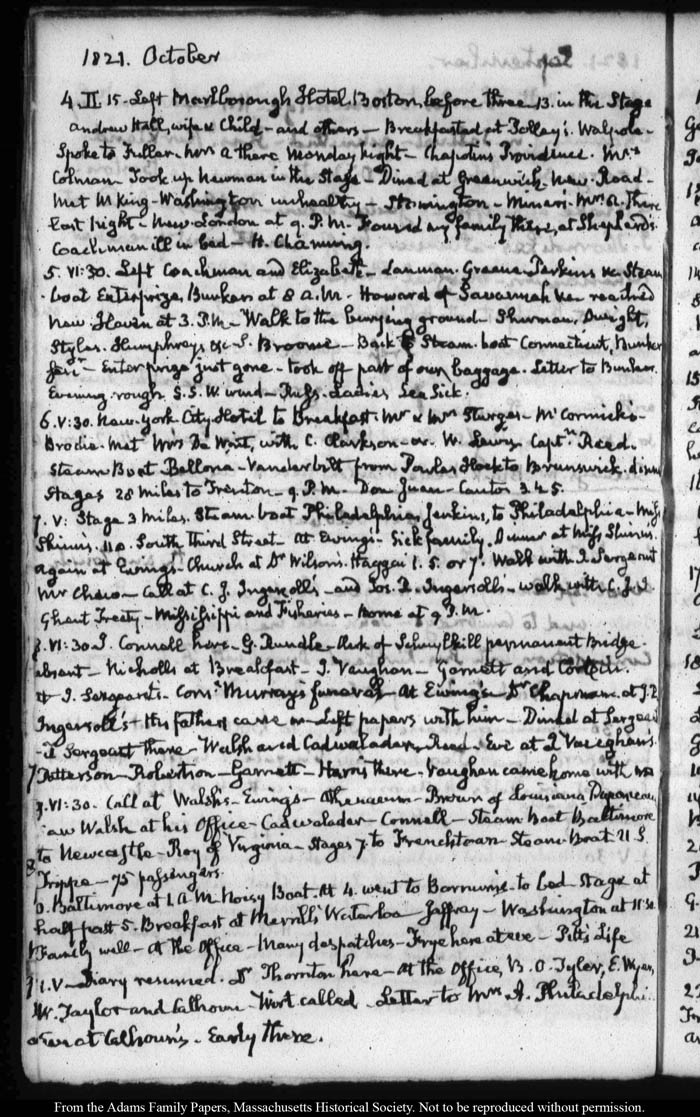 1821. October
4. II. 15. Left Marlborough Hotel, Boston, before three 13. in the Stage
Andrew Hall, wife & Child - and others - Breakfasted at Polley's. Walpole -
Spoke to Fuller. here a there Monday Night - Chapotin's Providence. Mrs
Colman Took up Newman in the Stage - Dined at Greenwich, New Road -
Met M King - Washington unhealthy - Stonington - Miner's. Mrs A. There
last Night - New London at 9. P.M. Found my family there, at Shephard's
Coachman ill in bed - H. Channing.
5. VI:30. Left Coachman and Elizabeth - Lanman. Greene. Perkins &c Steam
boat Enterprize, Bunker at 8 A.M. Howard of Savannah &c reached
New Haven at 3. P.M - Walk to the burying ground - Sherman, Dwight,
Styles. Humphreys &c S. Broome - Back to Steam-boat Connecticut, Bunker
junr - Enterprize just gone - took off part of our baggage. Letter to Bunker.
Evening rough. S.S.W. wind - Ladies Sea Sick.
6. V:30. New-York City Hotel to Breakfast. Mr & Mrs Sturges - McCormick's -
Brodie. Met Mrs De Wint, with C. Clarkson - W. Lewis, Captn Reed.
Steam Boat Bellona - Vanderbilt from Powles Hook to Brunswick. dinn
Stages 28 miles to Trenton - 9. P.M. Don Juan - Cantos 3. 4. 5.
7. V: Stage 3 miles. Steam boat Philadelphia, Jenkins, to Philadelphia - Miss
Shinn's. 110. South third Street - At Ewing's - Sick family. Dinner at Miss Shinn's.
again at Ewing's - Church at Dr Wilson's. Haggai 1. 5. or 7. Walk with J. Sergeant
Mr Chew - Call at C. J. Ingersoll's - and Jos. R. Ingersoll's - walk with C. J. I
Ghent Treaty - Mississippi and Fisheries - home at 9 P.M.
8. VI:30 J. Connell here - G. Rundle - Clerk of Schuylkill permanent Bridge.
absent - Nicholls at Breakfast - J. Vaughan - Garnett and
J. Sergeant. Comr Murray's funeral - At Ewing's Dr Chapman. at J. R
Ingersoll's - His father came in - Left papers with him - Dined at Sergean
- T Sergeant there - Walsh and Cadwalader, Reed. Eve at J Vaughan's.
Patterson - Robertson - Garnett - Harris there. Vaughan came home with me
9. VI:30. Call at Walsh's - Ewing's - Athenaeum - Brown of Louisiana Duponceau
aw Walsh at his Office - Cadwalader - Connell - Steam Boat Baltimore
to Newcastle - Roy of Virginia - Stages 7. to Frenchtown Steam-Boat U. S.
Trippe - 75 passengers.
0. Baltimore at 1. A.M. Noisy Boat. At 4. went to Barnum's - to bed Stage at
half past 5. Breakfast at Merrill's Waterloo - Jaffray - Washington at 11:30
Family well - At the Office - Many despatches - Frye here at eve - Pitt's Life
1. V - Diary resumed. Dr Thornton here - At the Office, B. O. Tyler, E. Wyer,
W. Taylor and Calhoun - Wirt called - Letter to Mrs A. Philadelphi
at Calhoun's - Early there.
From the Adams Family Papers, Massachusetts Historical Society. Not to be reproduced without permission.